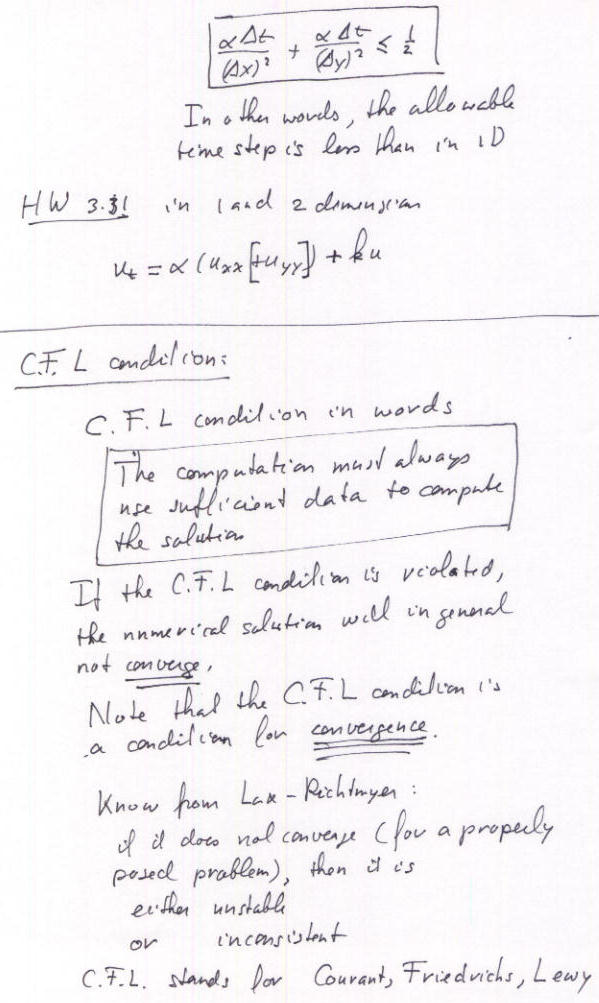 αΔt/(Δx)² + αΔt/(Δy)² ≤ 1/2
In other words, the allowable
time step is less than in 1D
HW 3.3! in 1 and 2 dimension
u_t = α(u_xx [+u_yy]) + ku
C.F.L condition:
C.F.L condition in words
The computation must always
use sufficient data to compute
the solution
If the C.F.L condition is violated,
the numerical solution will in general
not converge,
Note that the C.F.L condition is
a condition for convergence.
Know from Lax-Richtmyer:
if it does not converge (for a properly
posed problem), then it is
either unstable
or inconsistent
C.F.L. stands for Courant, Friedrichs, Lewy